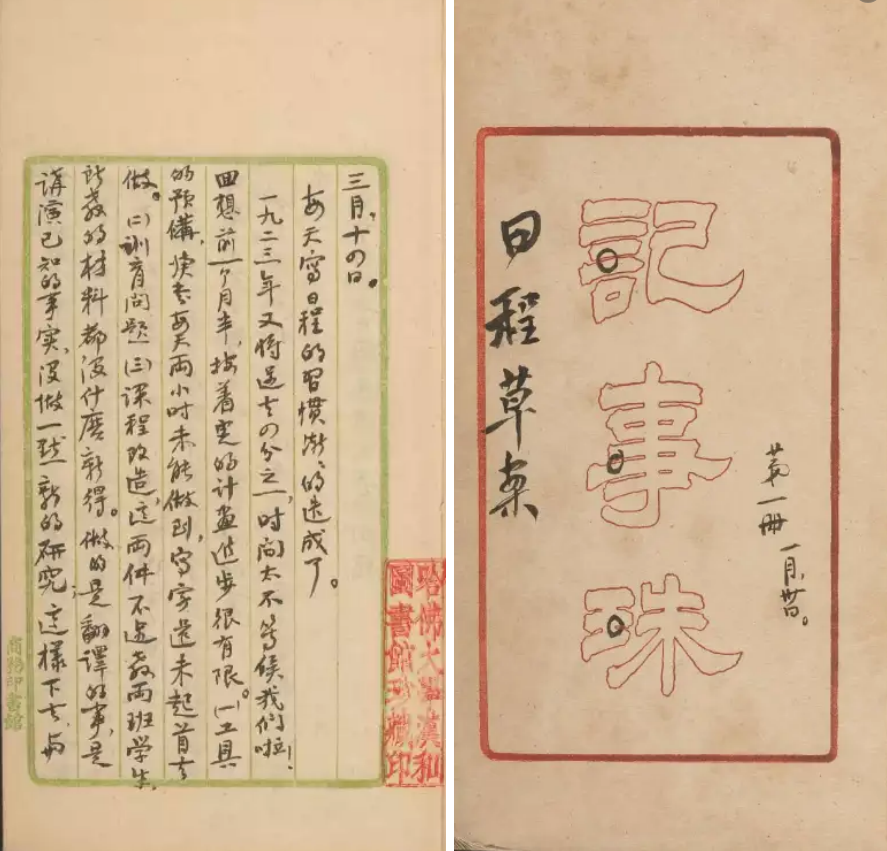 三月、十四日。
每天寫日程的習慣漸、的造成了。
一九二三年又將過去四分之一，时间太不等候我們啦！
回想前一个月半，按着定的计畫進步很有限。(一)工具
的預備，读书每天两小时未能做到，写字還未起首去
做。(二)训育问题(三)课程改造，这两件不过教两班学生，
所教的材料都没什麽新得。做的是翻译的事，是
講演已知的事实，没做一点新的研究；这樣下去，与
商務印書館
哈佛大學漢和
圖書館珍藏印
記事珠
日程草案
第一冊
一月、廿日。